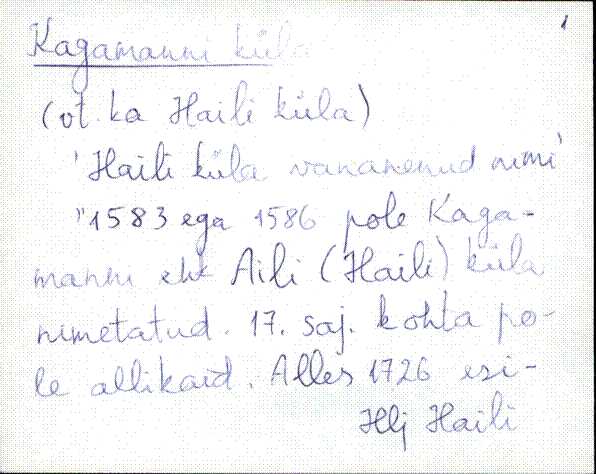 1
Kagamanni küla
(vt. ka Haili küla)
'Haili küla vananenud nimi'
"1583 ega 1586 pole Kaga-
manni ehk Aili (Haili) küla
nimetatud. 17. saj. kohta po-
le allikaid. Alles 1726 esi-
Hlj Haili